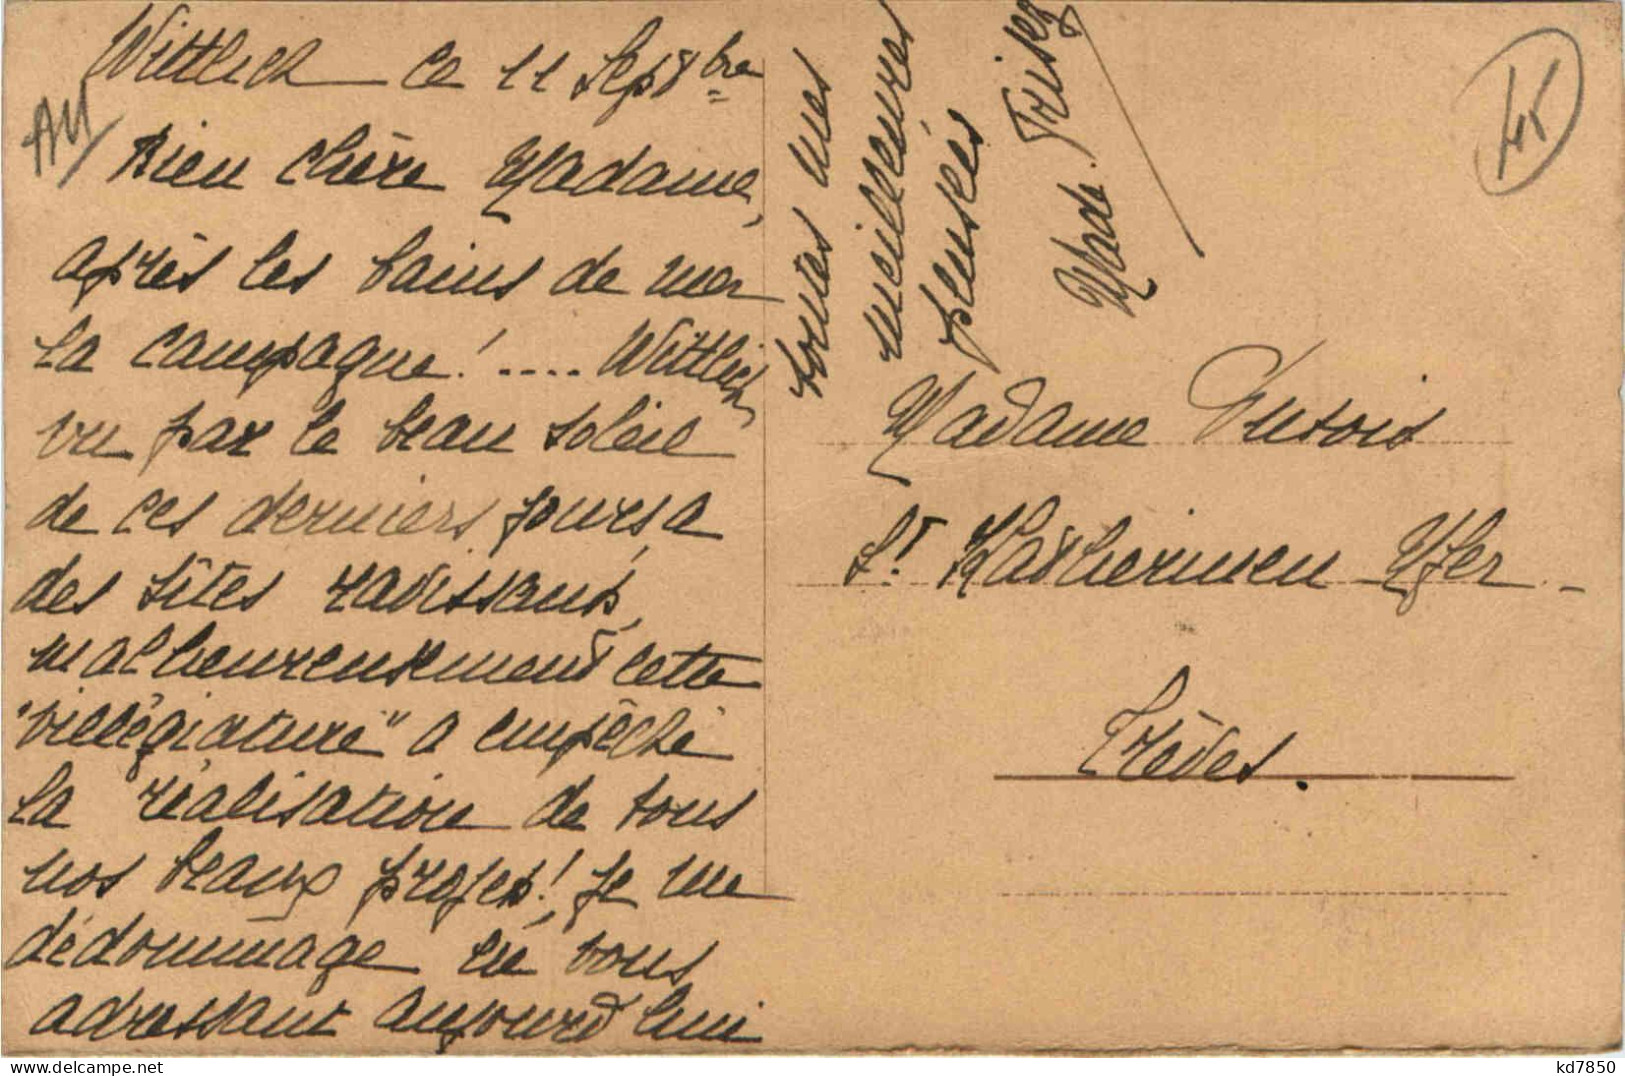 Wittlich ce 11 Sept bre
Bien chère Madame,
après les bains de mer
la campagne! .... Wittlich
vu par le beau soleil
de ces derniers jours, a
des sites ravissants,
malheureusement cette
"villégiature" a empêché
la réalisation de tous
nos beaux projets! Je me
dédommage en vous
adressant aujourd'hui
toutes mes
meilleures
pensées
Made.
Madame Dutois
St Katherinen Ufer -
Trèves.
45
kd7850